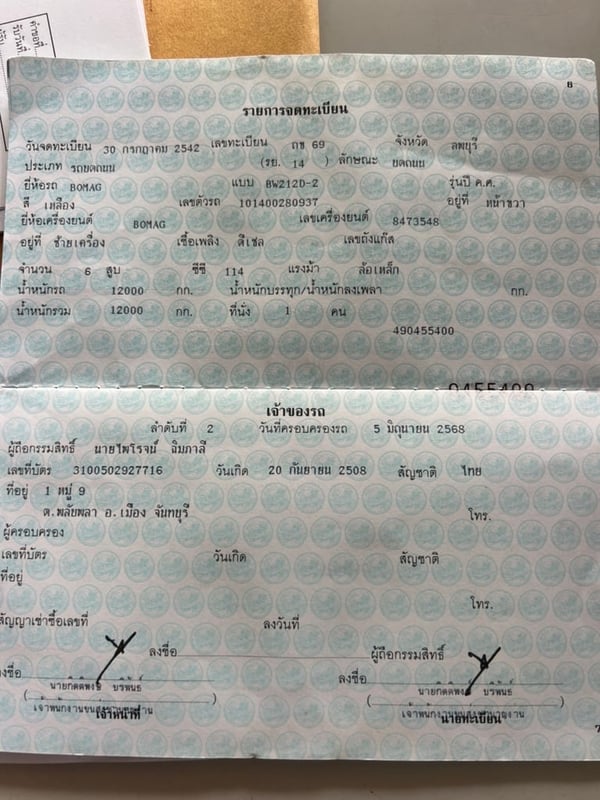 คำขอที่
รับวันที่
8
รายการจดทะเบียน
วันจดทะเบียน 30 กรกฎาคม 2542 เลขทะเบียน ถช 69 จังหวัด ลพบุรี
ประเภท รถบดถนน (รย. 14 ) ลักษณะ บดถนน
ยี่ห้อรถ BOMAG แบบ BW212D-2 รุ่นปี ค.ศ.
สี เหลือง เลขตัวรถ 101400280937 อยู่ที่ หน้าขวา
ยี่ห้อเครื่องยนต์ BOMAG เลขเครื่องยนต์ 8473548
อยู่ที่ ซ้ายเครื่อง เชื้อเพลิง ดีเซล เลขถังแก๊ส
จำนวน 6 สูบ ซีซี 114 แรงม้า ล้อเหล็ก
น้ำหนักรถ 12000 กก. น้ำหนักบรรทุก/น้ำหนักลงเพลา กก.
น้ำหนักรวม 12000 กก. ที่นั่ง 1 คน
490455400
เจ้าของรถ
ลำดับที่ 2 วันที่ครอบครองรถ 5 มิถุนายน 2568
ผู้ถือกรรมสิทธิ์ นายไพโรจน์ ฉิมภาลี
เลขที่บัตร 3100502927716 วันเกิด 20 กันยายน 2508 สัญชาติ ไทย
ที่อยู่ 1 หมู่ 9
ต.พลับพลา อ.เมือง จันทบุรี
โทร.
ผู้ครอบครอง
เลขที่บัตร วันเกิด สัญชาติ
ที่อยู่
โทร.
สัญญาเช่าซื้อเลขที่ ลงวันที่
ลงชื่อ ผู้ถือกรรมสิทธิ์
ลงชื่อ ลงชื่อ
( นายกิตติพงษ์ บริพันธ์ ) ( นายกิตติพงษ์ บริพันธ์ )
เจ้าหน้าที่ นายทะเบียน
7